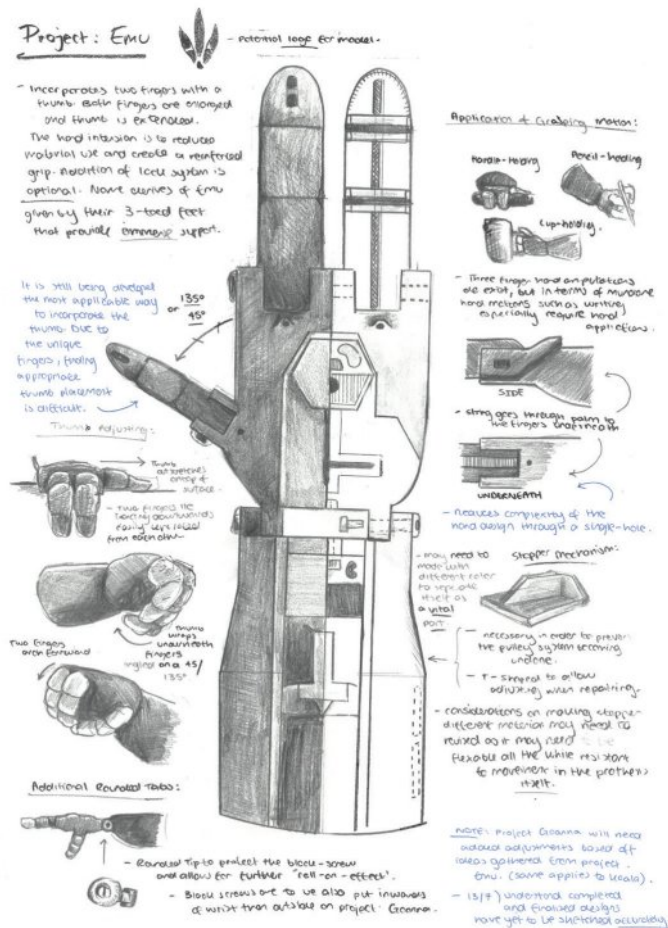 Project: Emu
- Potential logo for model.
- Incorporates two fingers with a
thumb. Both fingers are enlarged
and thumb is extended.
The hand intension is to reduced
material use and create a reinforced
grip. Addition of lock system is
optional. Name derives of Emu
given by their 3-toed feet
that provide immense support.
It is still being developed
the most applicable way
to incorporate the
thumb. Due to
the unique
fingers, finding
appropriate
thumb placement
is difficult.
135°
or
45°
Thumb Adjusting:
Thumb
outstretches
on top of
surface.
- Two fingers lie
facing downwards
easily separated
from each other
Thumb
wraps
underneath
fingers
angled on a 45/
135°
Two fingers
arch forward
Additional Rounded Tabs:
- Rounded Tip to protect the block-screw
and allow for further "roll-on-effect".
- Block screws are to be also put inwards
of wrist than outside on project: Goanna.
Application of Grasping motion:
Handle-holding
Pencil-holding
Cup-holding.
- Three finger hand amputations
do exist, but in terms of mundane
hand motions such as writing
especially require hand
applications.
SIDE
- string goes through palm to
the fingers underneath
UNDERNEATH
- Reduces complexity of the
hand design through a single-hole.
- may need to
made with
different color
to separate
itself as
a vital
part
Stopper Mechanism:
- necessary in order to prevent
the pulley system becoming
undone.
- T-shaped to allow
adjusting when repairing.
- considerations on making stopper
different material may need to
revised as it may need to be
flexable all the while resistant
to movement in the prothesis
itself.
NOTE: Project Goanna will need
added adjustments based of
ideas gathered from project
Emu. (same applies to koala).
- 13/7) understand completed
and finalised designs
have yet to be sketched accurately